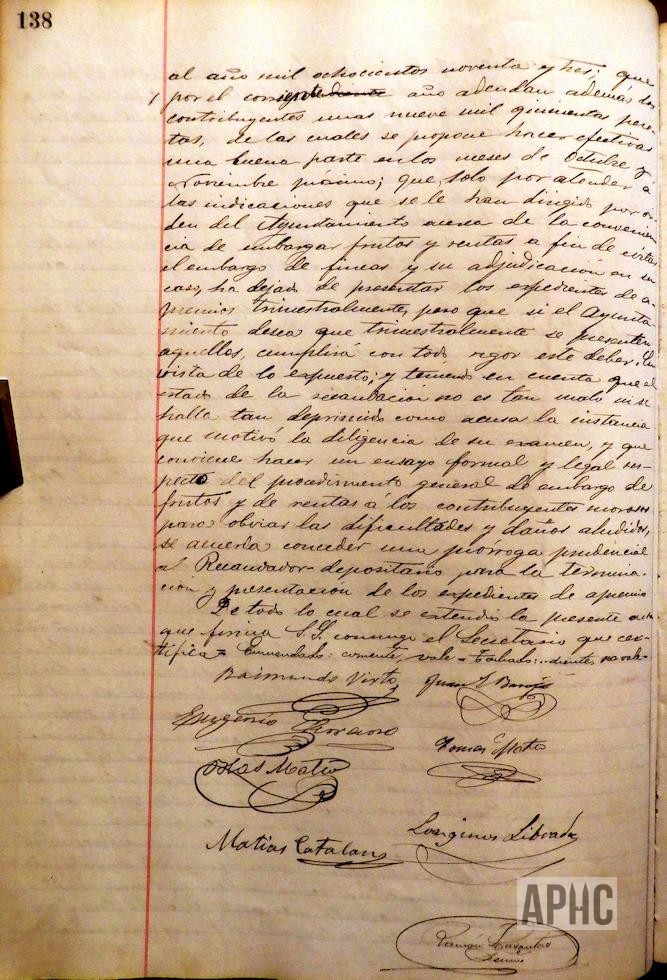 138
al año mil ochocientos noventa y tres; que
por el corriente año adeudan además los
contribuyentes unas nueve mil quinientas pese-
tas, de las cuales se propone hacer efectivas
una buena parte en los meses de Octubre y
Noviembre próximo; que, solo por atender a
las indicaciones que se le han dirigido por or-
den del Ayuntamiento acerca de la convenien-
cia de embargar frutos y rentas a fin de evitar
el embargo de fincas y su adjudicación en su
caso, ha dejado de presentar los expedientes de a-
premios trimestralmente, pero que si el Ayunta-
miento desea que trimestralmente se presenten
aquellos, cumplirá con todo rigor este deber. En
vista de lo expuesto; y teniendo en cuenta que el
estado de la recaudación no es tan malo ni se
halla tan deprimido como acusa la instancia
que motivó la diligencia de su examen, y que
conviene hacer un ensayo formal y legal res-
pecto del procedimiento general de embargo de
frutos y de rentas á los contribuyentes morosos
para obviar las dificultades y daños aludidos,
se acuerda conceder una prórroga prudencial
al Recaudador-depositario para la termina-
ción y presentación de los expedientes de apremio
De todo lo cual se extendió la presente acta
que firma S.S. conmigo el Secretario que cer-
tifica = Enmendado: corriente, vale = Tachado: ..diente, no vale-
Raimundo Virto
Juan
Eugenio
Tomas Mateo
Blas Mateo
Longinos Librada
Matias Catalan
APHC
Ramón